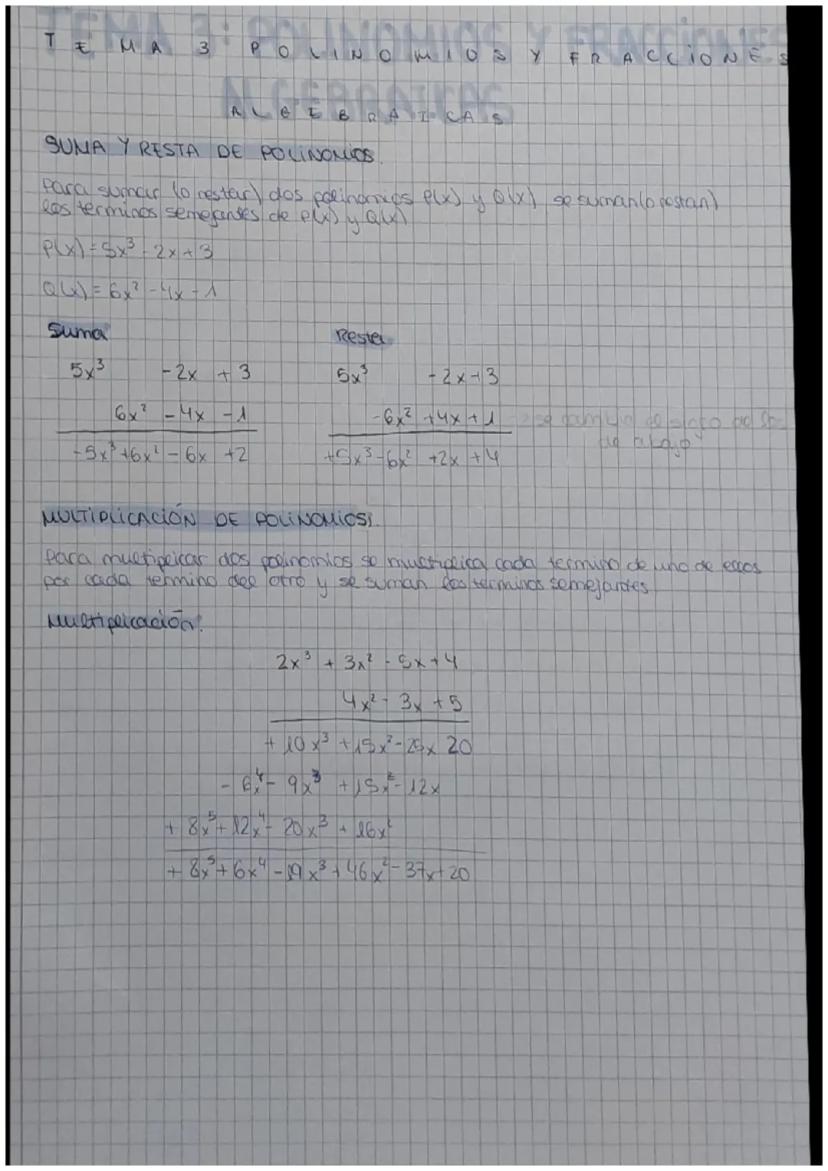 TEMA 3: POLINOMIOS Y FRACCIONES
ALGEBRAICAS
SUMA Y RESTA DE POLINOMIOS.
Para sumar (o restar) dos polinomios P(x) y Q(x) se suman (o restan)
los terminos semejantes de P(x) y Q(x)
P(x) = 5x³ - 2x + 3
Q(x) = 6x² - 4x - 1
Suma Resta
5x³ -2x + 3 5x³ -2x + 3
6x² - 4x - 1 -6x² + 4x + 1 se cambia de signo
de abajo
-5x³ + 6x² - 6x + 2 +5x³ - 6x² + 2x + 4
MULTIPLICACIÓN DE POLINOMIOS:
Para multiplicar dos polinomios se multiplica cada termino de uno de ellos
por cada termino del otro y se suman los terminos semejantes
Multiplicación:
2x³ + 3x² - 5x + 4
4x² - 3x + 5
+ 10x³ + 15x² - 25x 20
- 6x⁴ - 9x³ + 15x² - 12x
+ 8x⁵ + 12x⁴ - 20x³ + 16x²
+ 8x⁵ + 6x⁴ - 19x³ + 46x² - 37x + 20